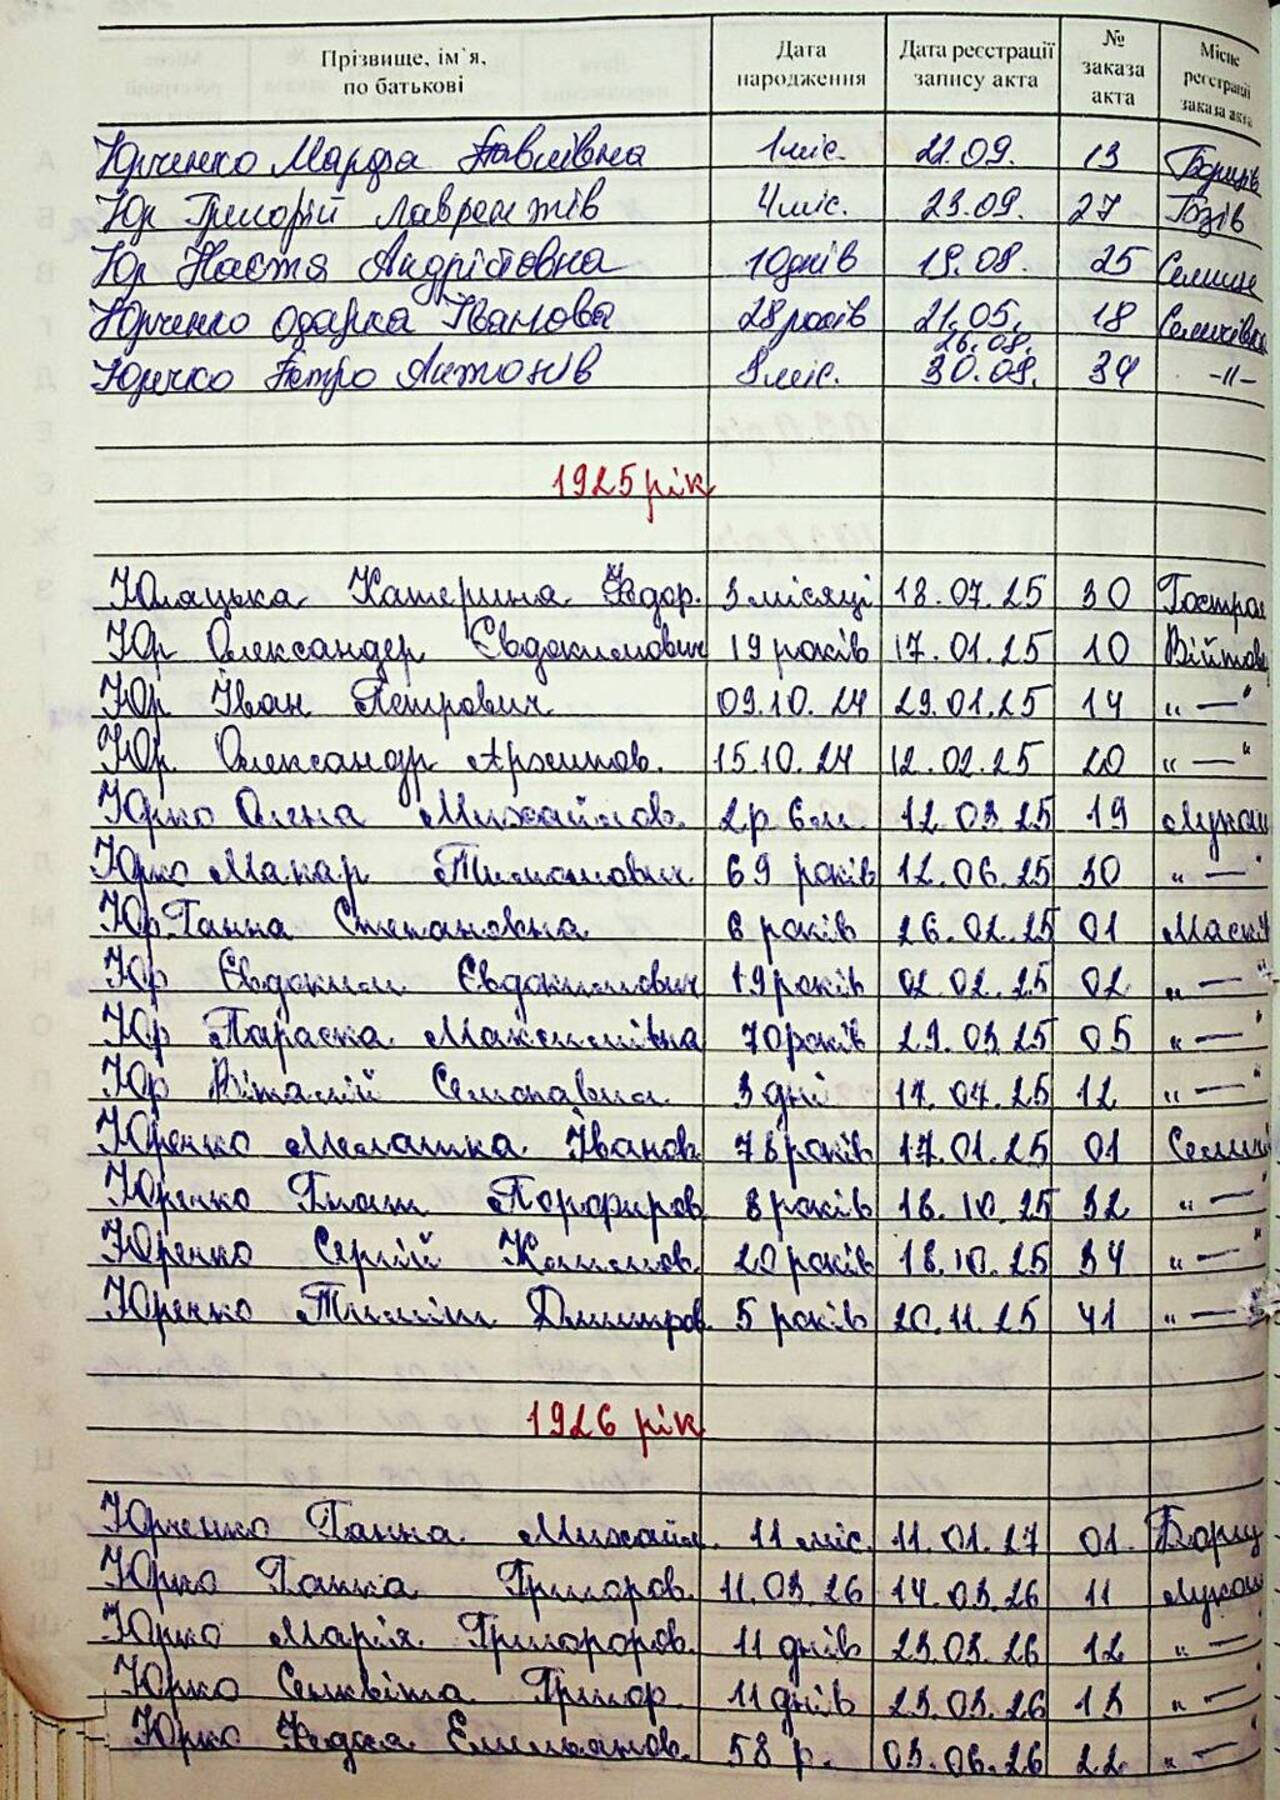 Прізвище, ім`я, по батькові Дата народження Дата реєстрації запису акта № заказа акта Місце реєстрації заказа акта
Юрченко Марфа Павлівна 1 міс. 22.09. 13
Юр Григорій Лаврентів 4 міс. 23.09. 27
Юр Настя Андріївна 10 днів 19.08. 25 Селище
Юрченко Одарка Іванова 28 років 21.05. 18 Семківка
26.08.
Юрчко Петро Антонів 8 міс. 30.08. 34 -"-
1925 рік
Юлацька Катерина Федор. 3 місяці 18.07.25 30 Гострол
Юр Олександер Євдокимович 19 років 17.01.25 10 Війтов
Юр Іван Петрович 09.10.24 29.01.25 14 " — "
Юр Олександр Архипов. 15.10.24 12.02.25 20 " — "
Юрко Олена Михайлов. 2р. 6 м. 12.03.25 19 Лукаш
Юрко Макар Тимошович 69 років 12.06.25 30 " — "
Юр Ганна Степановна 6 років 26.02.25 01 Маскі
Юр Євдоким Євдокимович 19 років 02.02.25 02 " — "
Юр Параска Максимівна 70 років 29.03.25 05 " — "
Юр Віталій 3 дні 17.07.25 12 " — "
Юренко Мелашка Іванов. 78 років 17.01.25 01 Семкі
Юренко Гнат Порфиров. 8 років 18.10.25 32 " — "
Юренко Сергій Климов. 20 років 18.10.25 34 " — "
Юренко Тиміш Дмитров. 5 років 20.11.25 41 " — "
1926 рік
Юрченко Ганна Михайл. 11 міс. 11.01.27 01.
Юрко Ганна Григоров. 11.03.26 14.03.26 11 Лукаш
Юрко Марія Григороров. 11 днів 23.03.26 12 " — "
Юрко Григор. 11 днів 23.03.26 13 " — "
Юрко Омельянов. 58 р. 03.06.26 22 " — "